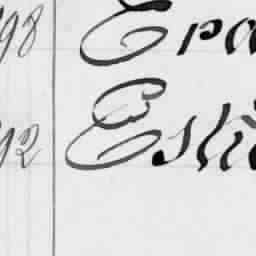 98 Epa
92 Esti